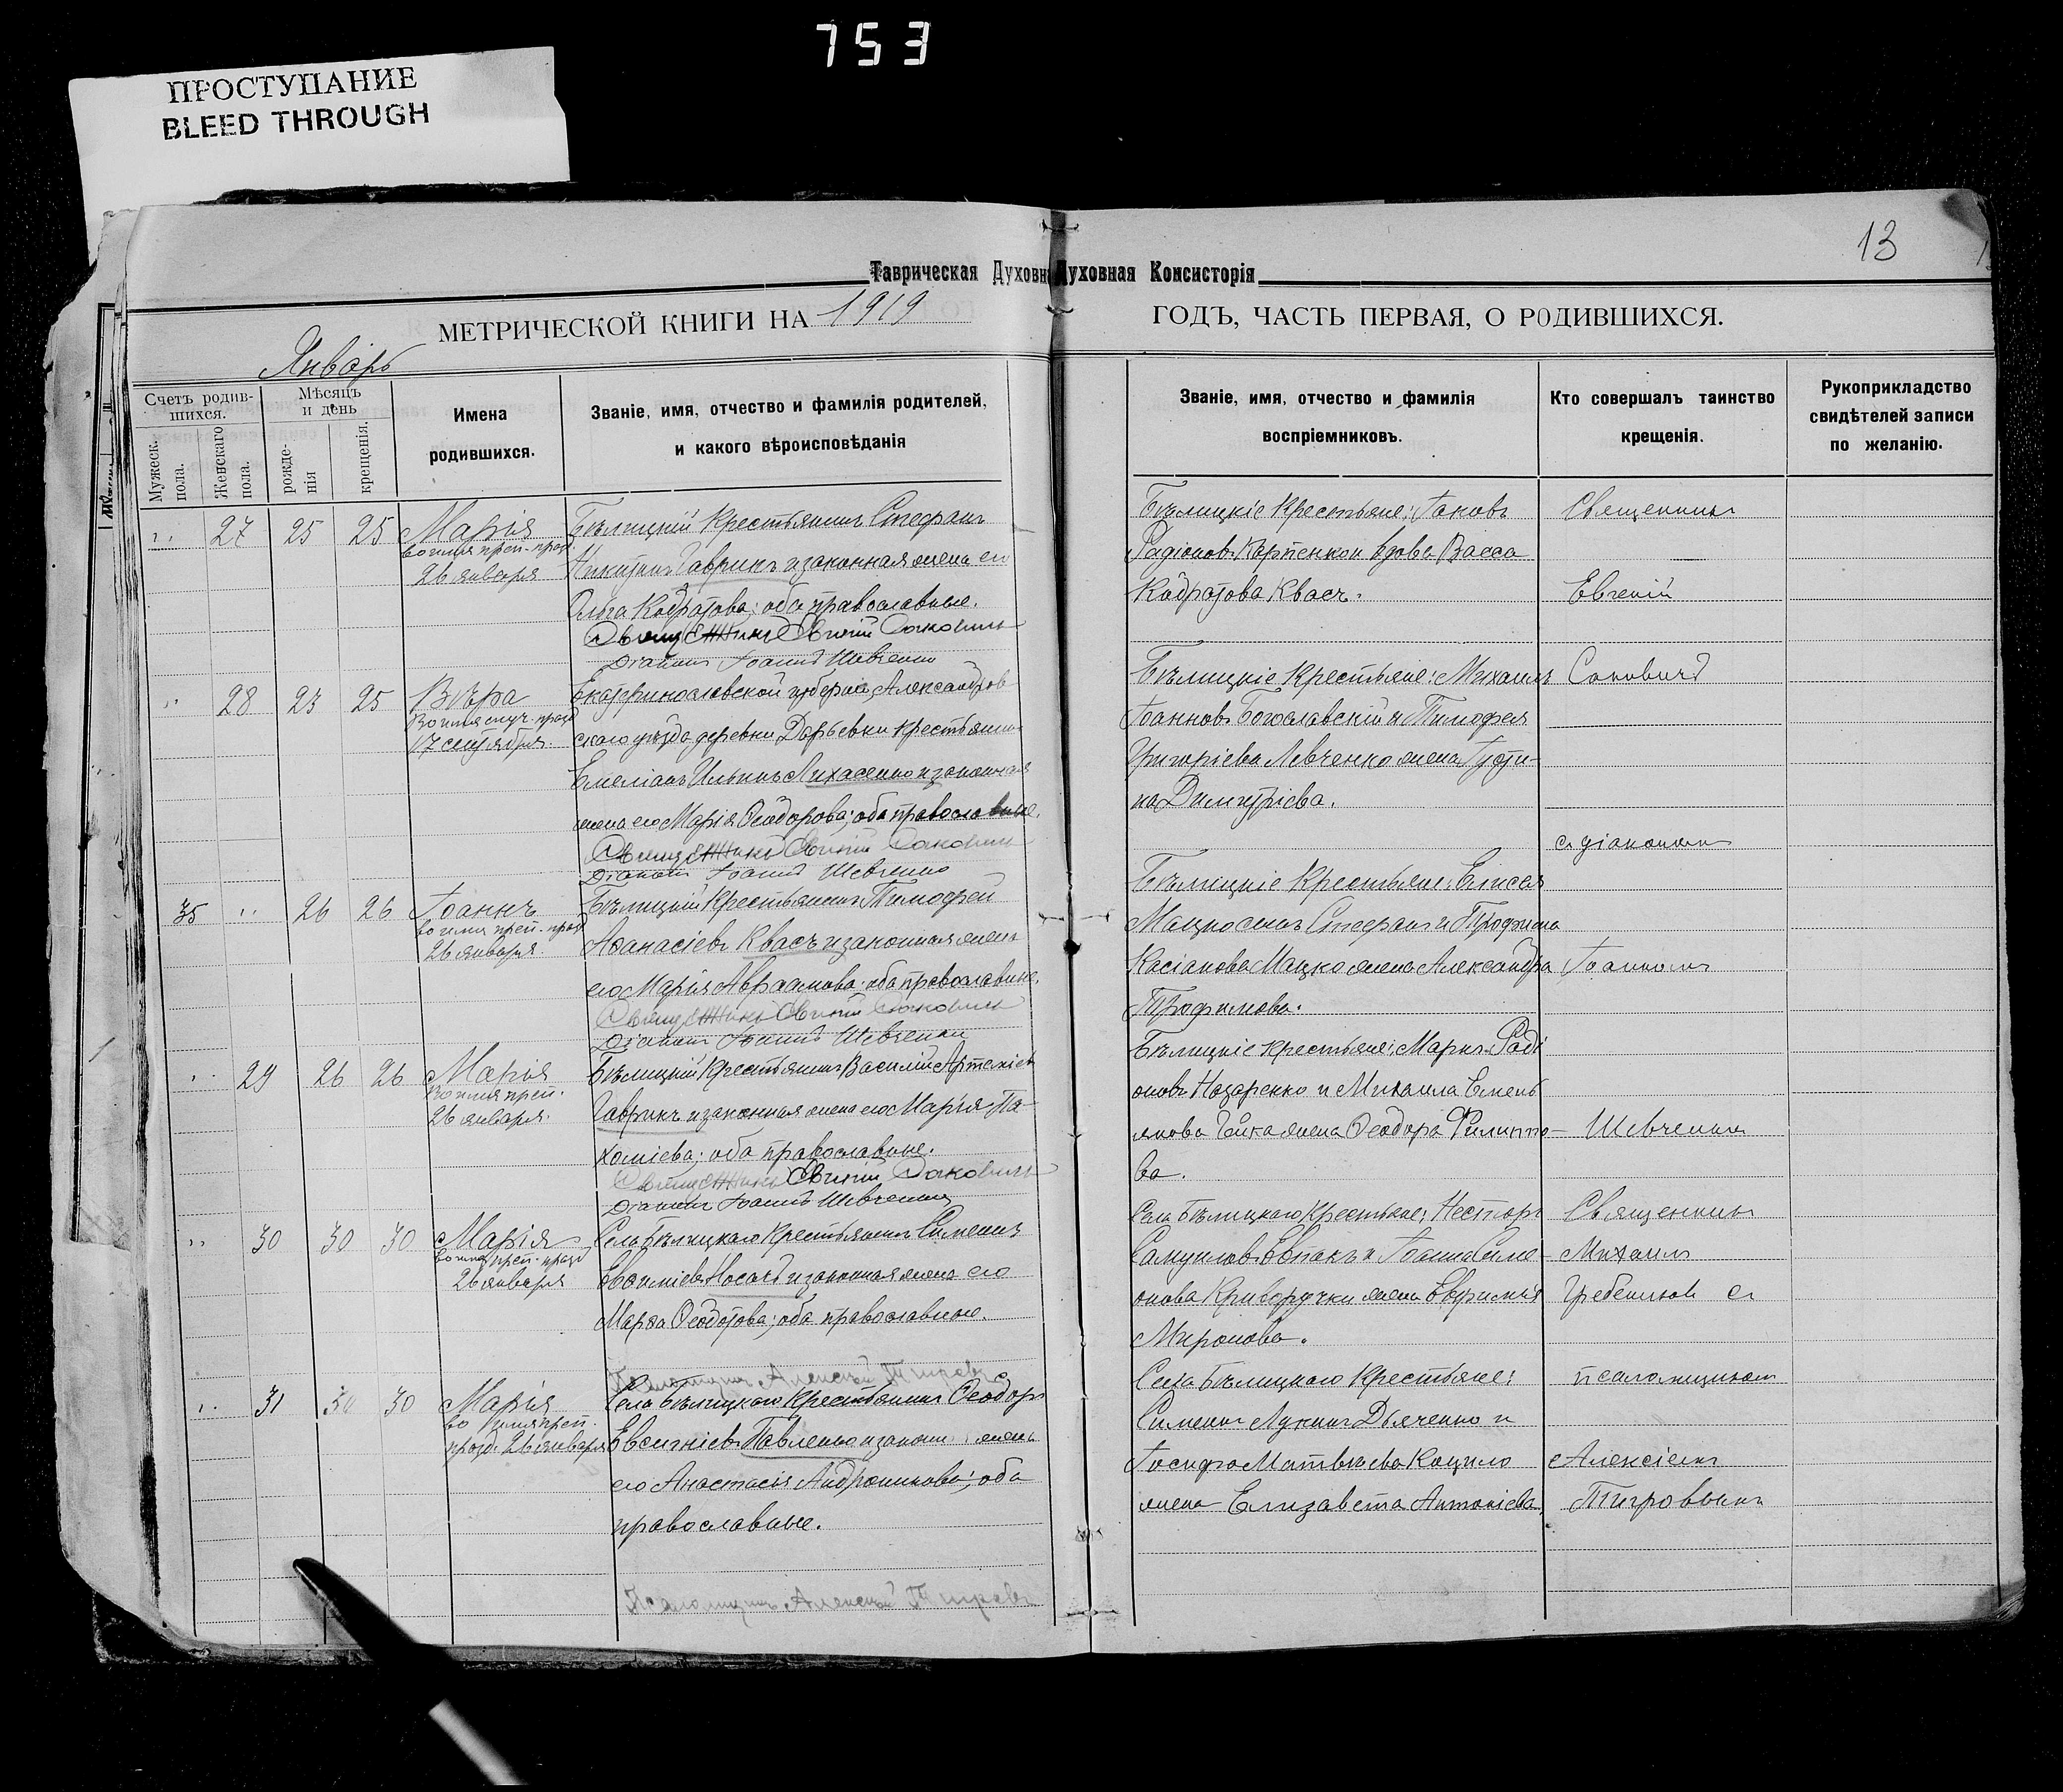 753
ПРОСТУПАНИЕ
BLEED THROUGH
13
Таврическая Духовная Консисторія
МЕТРИЧЕСКОЙ КНИГИ НА 1919
ГОДЪ, ЧАСТЬ ПЕРВАЯ, О РОДИВШИХСЯ.
Январь
Счетъ родив-
шихся.
Мѣсяцъ
и день
Мужеск.
пола.
Женскаго
пола.
рожде-
нія
крещенія.
Имена
родившихся.
Званіе, имя, отчество и фамилія родителей,
и какого вѣроисповѣданія
Званіе, имя, отчество и фамилія
воспріемниковъ.
Кто совершалъ таинство
крещенія.
Рукоприкладство
свидѣтелей записи
по желанію.
27 25 25 Марія
во имя преп. празд.
26 января
Бѣлицкій крестьянинъ Стефанъ
Никитинъ Гаврикъ и законная жена его
Ольга Кодратова; оба православные.
Священникъ Евгеній Саковичъ
Діаконъ Іоаннъ Шевченко
Бѣлицкіе крестьяне: Іаковъ
Радіоновъ Карпенко и вдова Васса
Кодратова Квасъ.
Священникъ
Евгеній
28 23 25 Вѣра
Во имя муч. празд
17 сентября.
Екатеринославской губерніи, Александров
скаго уѣзда деревни Дарьевки крестьянинъ
Емеліанъ Ильинъ Лихасенко и законная
жена его Марія Ѳеодорова; оба православные.
Священникъ Евгеній Саковичъ
Діаконъ Іоаннъ Шевченко
Бѣлицкіе крестьяне: Михаилъ
Іоанновъ Богославскій и Тимофея
Григоріева Левченко жена Іусти-
на Димитріева.
Саковичъ
съ діакономъ
35 26 26 Іоаннъ
во имя преп. празд
26 января.
Бѣлицкій крестьянинъ Тимофей
Аѳанасіевъ Квасъ и законная жена
его Марія Авраамова; оба православные.
Священникъ Евгеній Саковичъ
Діаконъ Іоаннъ Шевченко
Бѣлицкіе крестьяне: Елисея
Мацко сынъ Стефанъ и Трофима
Касіанова Мацко жена Александра
Трофимова.
Іоанномъ
29 26 26 Марія
Во имя преп.
26 января.
Бѣлицкій крестьянинъ Василій Артеміевъ
Гаврикъ и законная жена его Марія Па-
хоміева; оба православные.
Священникъ Евгеній Саковичъ
Діаконъ Іоаннъ Шевченко
Бѣлицкіе крестьяне: Маркъ Раді
оновъ Назаренко и Михаила Емель
янова Гайка жена Ѳеодора Филиппо-
ва.
Шевченко
30 30 30 Марія
во имя преп. празд
26 января
Села Бѣлицкаго крестьянинъ Симеонъ
Евѳиміевъ Носачъ и законная жена его
Марѳа Ѳеодотова; оба православные.
Псаломщикъ Алексій Тигровъ
Села Бѣлицкаго крестьяне: Несторъ
Самуиловъ Евтакъ и Іоанна Симе-
онова Криворучки жена Евфимія
Миронова.
Священникъ
Михаилъ
Гребенниковъ съ
31 30 30 Марія
во имя преп.
празд. 26 января
Села Бѣлицкаго крестьянинъ Ѳеодоръ
Евсигніевъ Павленко и законн жена
его Анастасія Андроникова; оба
православные.
Псаломщикъ Алексій Тигровъ
Села Бѣлицкаго крестьяне:
Симеонъ Лукинъ Дьяченко и
Іосифа Матвѣева Коцило
жена Елизавета Антоніева.
псаломщикомъ
Алексіемъ
Тигровымъ